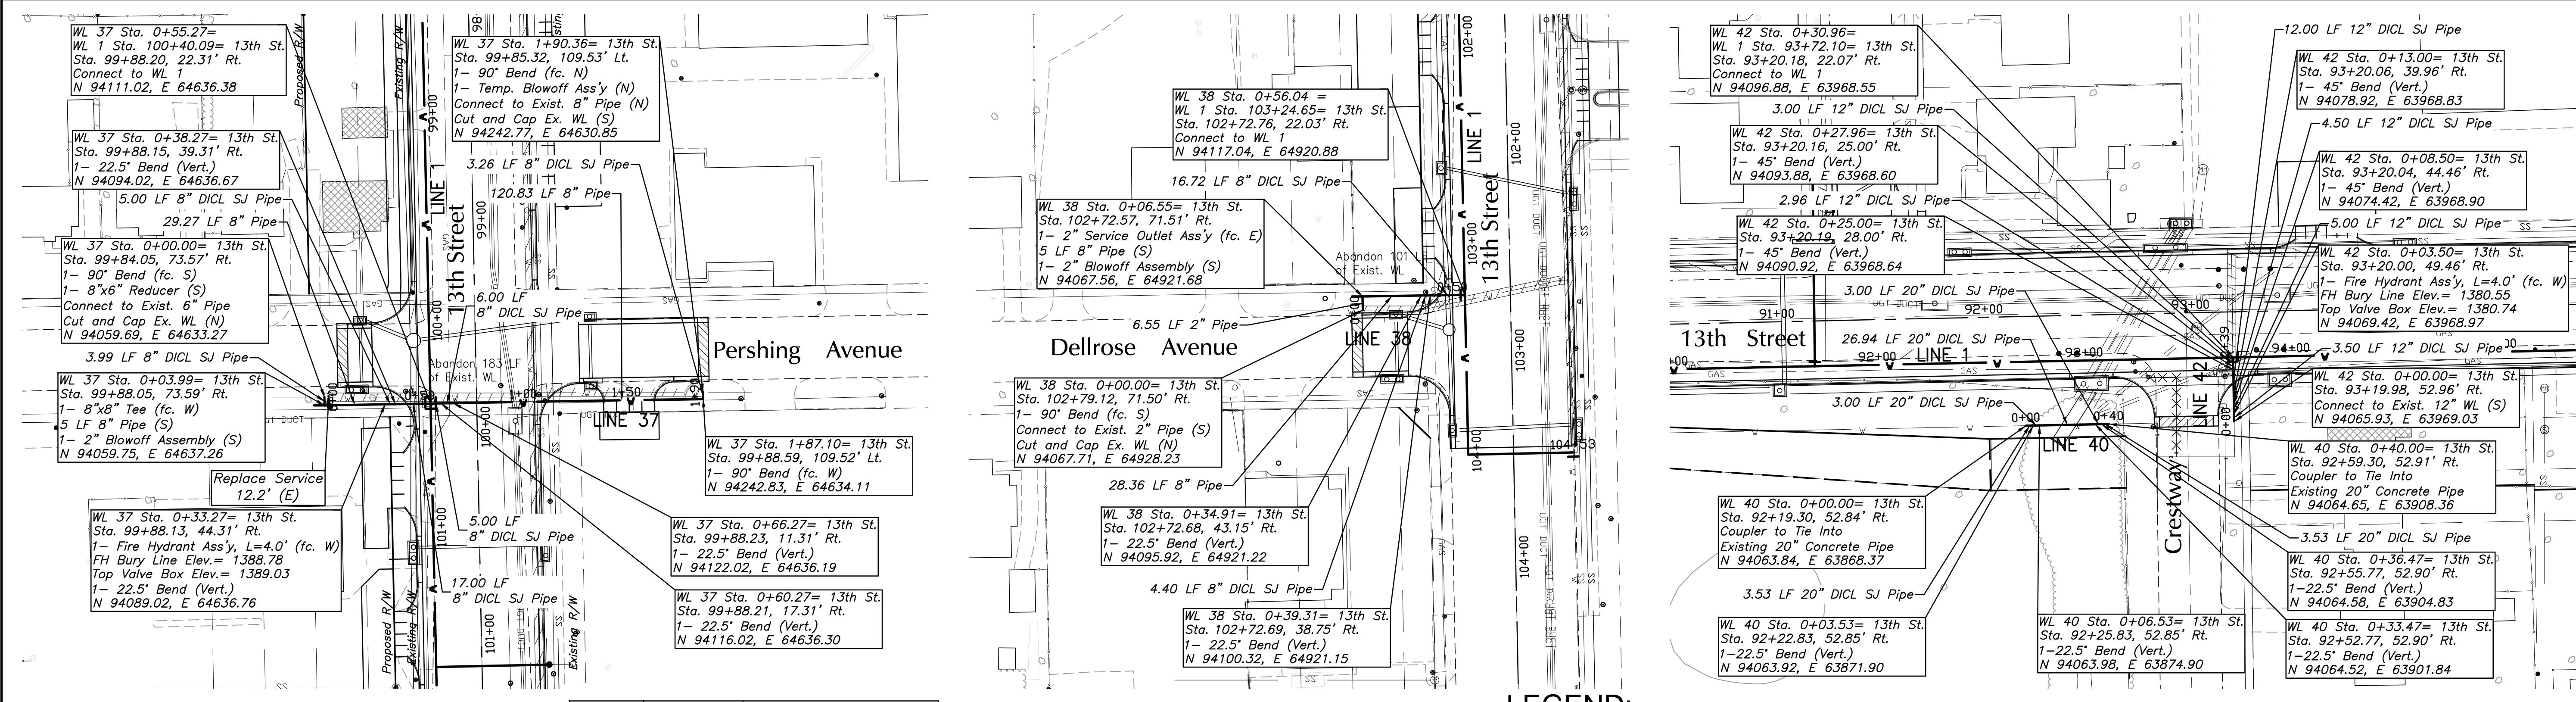 WL 37 Sta. 0+55.27=
WL 1 Sta. 100+40.09= 13th St.
Sta. 99+88.20, 22.31' Rt.
Connect to WL 1
N 94111.02, E 64636.38
WL 37 Sta. 0+38.27= 13th St.
Sta. 99+88.15, 39.31' Rt.
1- 22.5° Bend (Vert.)
N 94094.02, E 64636.67
5.00 LF 8" DICL SJ Pipe
29.27 LF 8" Pipe
WL 37 Sta. 0+00.00= 13th St.
Sta. 99+84.05, 73.57' Rt.
1- 90° Bend (fc. S)
1- 8"x6" Reducer (S)
Connect to Exist. 6" Pipe
Cut and Cap Ex. WL (N)
N 94059.69, E 64633.27
3.99 LF 8" DICL SJ Pipe
WL 37 Sta. 0+03.99= 13th St.
Sta. 99+88.05, 73.59' Rt.
1- 8"x8" Tee (fc. W)
5 LF 8" Pipe (S)
1- 2" Blowoff Assembly (S)
N 94059.75, E 64637.26
Replace Service
12.2' (E)
WL 37 Sta. 0+33.27= 13th St.
Sta. 99+88.13, 44.31' Rt.
1- Fire Hydrant Ass'y, L=4.0' (fc. W)
FH Bury Line Elev.= 1388.78
Top Valve Box Elev.= 1389.03
1- 22.5° Bend (Vert.)
N 94089.02, E 64636.76
Proposed R/W
Existing R/W
98+
99+00
LINE 1
13th Street
99+00
WL 37 Sta. 1+90.36= 13th St.
Sta. 99+85.32, 109.53' Lt.
1- 90° Bend (fc. N)
1- Temp. Blowoff Ass'y (N)
Connect to Exist. 8" Pipe (N)
Cut and Cap Ex. WL (S)
N 94242.77, E 64630.85
3.26 LF 8" DICL SJ Pipe
120.83 LF 8" Pipe
6.00 LF
8" DICL SJ Pipe
100+00
Abandon 183 LF
of Exist. WL
Pershing Avenue
0+00
1+00
1+50
1+90
LINE 37
100+00
WL 37 Sta. 1+87.10= 13th St.
Sta. 99+88.59, 109.52' Lt.
1- 90° Bend (fc. W)
N 94242.83, E 64634.11
5.00 LF
8" DICL SJ Pipe
101+00
WL 37 Sta. 0+66.27= 13th St.
Sta. 99+88.23, 11.31' Rt.
1- 22.5° Bend (Vert.)
N 94122.02, E 64636.19
17.00 LF
8" DICL SJ Pipe
WL 37 Sta. 0+60.27= 13th St.
Sta. 99+88.21, 17.31' Rt.
1- 22.5° Bend (Vert.)
N 94116.02, E 64636.30
Proposed R/W
Existing R/W
101+00
Existing R/W
WL 38 Sta. 0+56.04 =
WL 1 Sta. 103+24.65= 13th St.
Sta. 102+72.76, 22.03' Rt.
Connect to WL 1
N 94117.04, E 64920.88
16.72 LF 8" DICL SJ Pipe
WL 38 Sta. 0+06.55= 13th St.
Sta. 102+72.57, 71.51' Rt.
1- 2" Service Outlet Ass'y (fc. E)
5 LF 8" Pipe (S)
1- 2" Blowoff Assembly (S)
N 94067.56, E 64921.68
Abandon 101 LF
of Exist. WL
6.55 LF 2" Pipe
Dellrose Avenue
LINE 38
0+00
0+50
102+00
LINE 1
13th Street
102+00
103+00
103+00
104+00
104+53
104+00
WL 38 Sta. 0+00.00= 13th St.
Sta. 102+79.12, 71.50' Rt.
1- 90° Bend (fc. S)
Connect to Exist. 2" Pipe (S)
Cut and Cap Ex. WL (N)
N 94067.71, E 64928.23
28.36 LF 8" Pipe
WL 38 Sta. 0+34.91= 13th St.
Sta. 102+72.68, 43.15' Rt.
1- 22.5° Bend (Vert.)
N 94095.92, E 64921.22
4.40 LF 8" DICL SJ Pipe
WL 38 Sta. 0+39.31= 13th St.
Sta. 102+72.69, 38.75' Rt.
1- 22.5° Bend (Vert.)
N 94100.32, E 64921.15
LEGEND:
WL 42 Sta. 0+30.96=
WL 1 Sta. 93+72.10= 13th St.
Sta. 93+20.18, 22.07' Rt.
Connect to WL 1
N 94096.88, E 63968.55
3.00 LF 12" DICL SJ Pipe
WL 42 Sta. 0+27.96= 13th St.
Sta. 93+20.16, 25.00' Rt.
1- 45° Bend (Vert.)
N 94093.88, E 63968.60
2.96 LF 12" DICL SJ Pipe
WL 42 Sta. 0+25.00= 13th St.
Sta. 93+20.19, 28.00' Rt.
1- 45° Bend (Vert.)
N 94090.92, E 63968.64
3.00 LF 20" DICL SJ Pipe
UGT DUCT
91+00
92+00
93+00
13th Street
26.94 LF 20" DICL SJ Pipe
92+00
LINE 1
93+00
94+00
GAS
3.00 LF 20" DICL SJ Pipe
0+00
0+40
LINE 40
LINE 42
0+39
0+00
Crestway
WL 40 Sta. 0+00.00= 13th St.
Sta. 92+19.30, 52.84' Rt.
Coupler to Tie Into
Existing 20" Concrete Pipe
N 94063.84, E 63868.37
3.53 LF 20" DICL SJ Pipe
WL 40 Sta. 0+03.53= 13th St.
Sta. 92+22.83, 52.85' Rt.
1-22.5° Bend (Vert.)
N 94063.92, E 63871.90
WL 40 Sta. 0+06.53= 13th St.
Sta. 92+25.83, 52.85' Rt.
1-22.5° Bend (Vert.)
N 94063.98, E 63874.90
12.00 LF 12" DICL SJ Pipe
WL 42 Sta. 0+13.00= 13th St.
Sta. 93+20.06, 39.96' Rt.
1- 45° Bend (Vert.)
N 94078.92, E 63968.83
4.50 LF 12" DICL SJ Pipe
WL 42 Sta. 0+08.50= 13th St.
Sta. 93+20.04, 44.46' Rt.
1- 45° Bend (Vert.)
N 94074.42, E 63968.90
5.00 LF 12" DICL SJ Pipe
WL 42 Sta. 0+03.50= 13th St.
Sta. 93+20.00, 49.46' Rt.
1- Fire Hydrant Ass'y, L=4.0' (fc. W)
FH Bury Line Elev.= 1380.55
Top Valve Box Elev.= 1380.74
N 94069.42, E 63968.97
3.50 LF 12" DICL SJ Pipe
WL 42 Sta. 0+00.00= 13th St.
Sta. 93+19.98, 52.96' Rt.
Connect to Exist. 12" WL (S)
N 94065.93, E 63969.03
WL 40 Sta. 0+40.00= 13th St.
Sta. 92+59.30, 52.91' Rt.
Coupler to Tie Into
Existing 20" Concrete Pipe
N 94064.65, E 63908.36
3.53 LF 20" DICL SJ Pipe
WL 40 Sta. 0+36.47= 13th St.
Sta. 92+55.77, 52.90' Rt.
1-22.5° Bend (Vert.)
N 94064.58, E 63904.83
WL 40 Sta. 0+33.47= 13th St.
Sta. 92+52.77, 52.90' Rt.
1-22.5° Bend (Vert.)
N 94064.52, E 63901.84